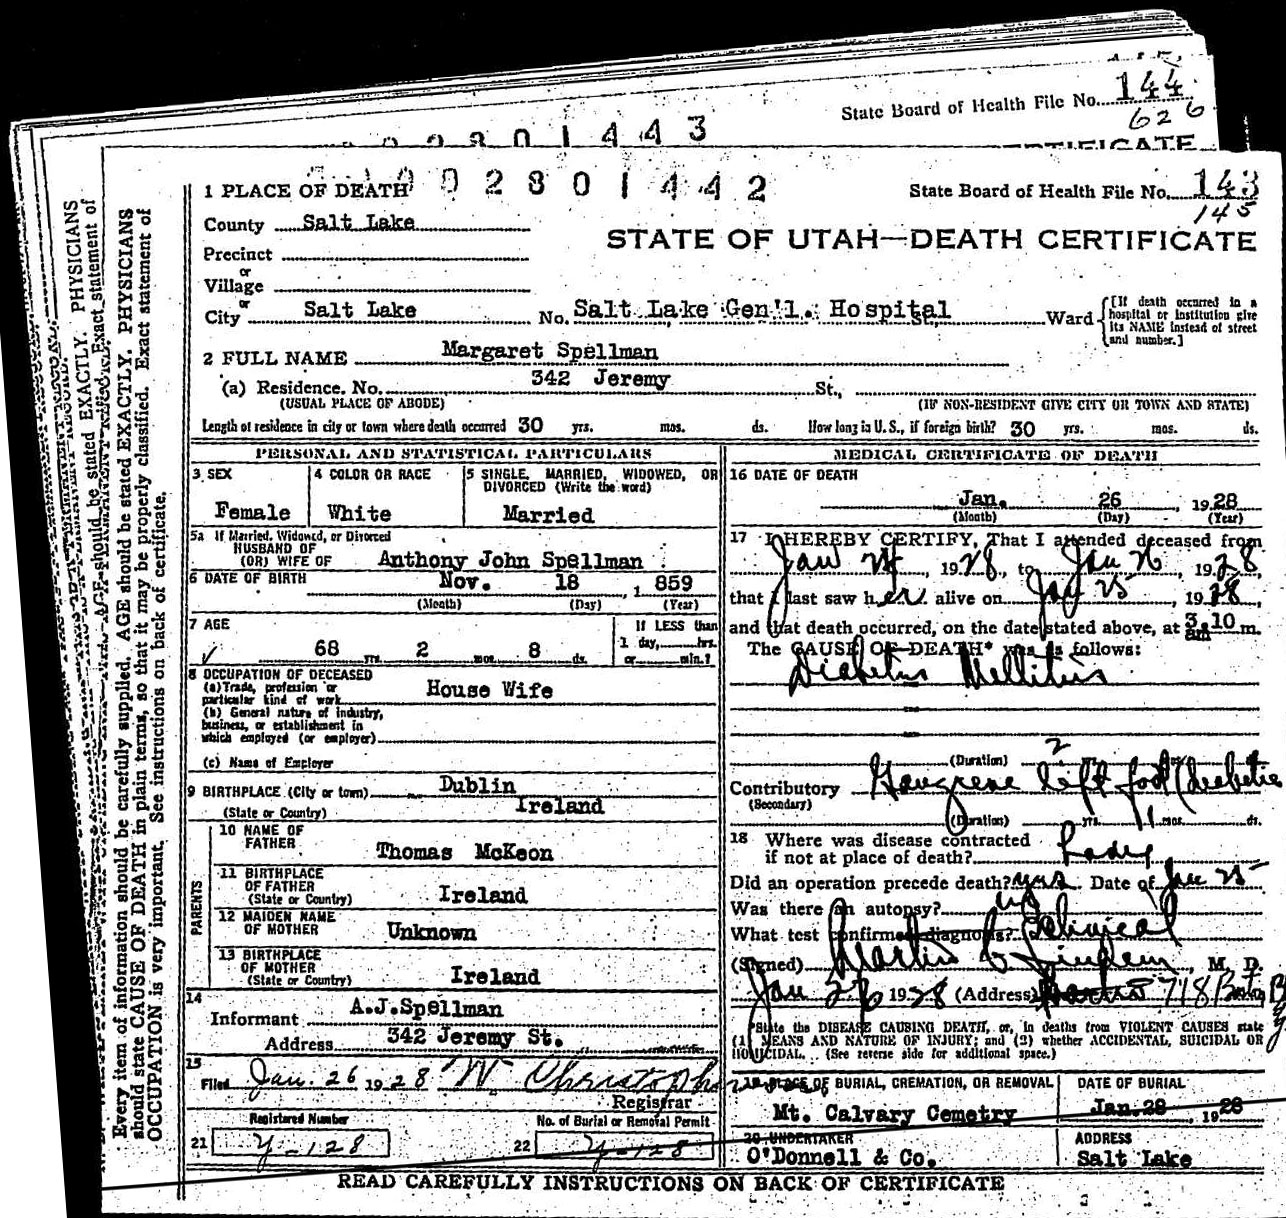 State Board of Health File No. 144
626
02801443
CERTIFICATE
1 PLACE OF DEATH
002801442
State Board of Health File No. 143
145
County Salt Lake
STATE OF UTAH—DEATH CERTIFICATE
Precinct
or
Village
or
City Salt Lake No. Salt Lake Gen'l. Hospital St., Ward
[If death occurred in a hospital or institution give its NAME instead of street and number.]
2 FULL NAME Margaret Spellman
(a) Residence. No. 342 Jeremy St.,
(USUAL PLACE OF ABODE) (IF NON-RESIDENT GIVE CITY OR TOWN AND STATE)
Length of residence in city or town where death occurred 30 yrs. mos. ds. How long in U.S., if foreign birth? 30 yrs. mos. ds.
PERSONAL AND STATISTICAL PARTICULARS
3 SEX
Female
4 COLOR OR RACE
White
5 SINGLE, MARRIED, WIDOWED, OR
DIVORCED (Write the word)
Married
5a If Married, Widowed, or Divorced
HUSBAND OF
(OR) WIFE OF Anthony John Spellman
6 DATE OF BIRTH Nov. 18, 1859
(Month) (Day) (Year)
7 AGE
68 yrs. 2 mos. 8 ds.
If LESS than
1 day, hrs.
or min.?
8 OCCUPATION OF DECEASED
(a) Trade, profession or
particular kind of work House Wife
(b) General nature of industry,
business, or establishment in
which employed (or employer)
(c) Name of Employer
9 BIRTHPLACE (City or town) Dublin
(State or Country) Ireland
PARENTS
10 NAME OF
FATHER Thomas McKeon
11 BIRTHPLACE
OF FATHER
(State or Country) Ireland
12 MAIDEN NAME
OF MOTHER Unknown
13 BIRTHPLACE
OF MOTHER
(State or Country) Ireland
14
Informant A.J.Spellman
Address 342 Jeremy St.
15
Filed Jan. 26 1928 W Christoph
Registrar
Registered Number
21 Y-128
No. of Burial or Removal Permit
22 Y-128
MEDICAL CERTIFICATE OF DEATH
16 DATE OF DEATH
Jan. 26 1928
(Month) (Day) (Year)
17 I HEREBY CERTIFY, That I attended deceased from
Jan 24, 1928, to Jan 26, 1928,
that I last saw her alive on Jan 25, 1928,
and that death occurred, on the date stated above, at 3.10 am m.
The CAUSE OF DEATH* was as follows:
Diabetus Mellitus
(Duration) 2 ds.
Contributory Gangrene left foot (diabetic
(Secondary)
(Duration) yrs. 1 mos. ds.
18 Where was disease contracted
if not at place of death?
Did an operation precede death? yes Date of Jan 25
Was there an autopsy? no
What test confirmed diagnosis? Clinical
(Signed) Martin C Lindem, M. D.
Jan 26 1928 (Address) 718
*State the DISEASE CAUSING DEATH, or, in deaths from VIOLENT CAUSES state
(1) MEANS AND NATURE OF INJURY; and (2) whether ACCIDENTAL, SUICIDAL OR
HOMICIDAL. (See reverse side for additional space.)
19 PLACE OF BURIAL, CREMATION, OR REMOVAL
Mt. Calvary Cemetry
DATE OF BURIAL
Jan.28 1928
20 UNDERTAKER
O'Donnell & Co.
ADDRESS
Salt Lake
READ CAREFULLY INSTRUCTIONS ON BACK OF CERTIFICATE
Every item of information should be carefully supplied. AGE should be stated EXACTLY. PHYSICIANS
should state CAUSE OF DEATH in plain terms, so that it may be properly classified. Exact statement of
OCCUPATION is very important. See instructions on back of certificate.